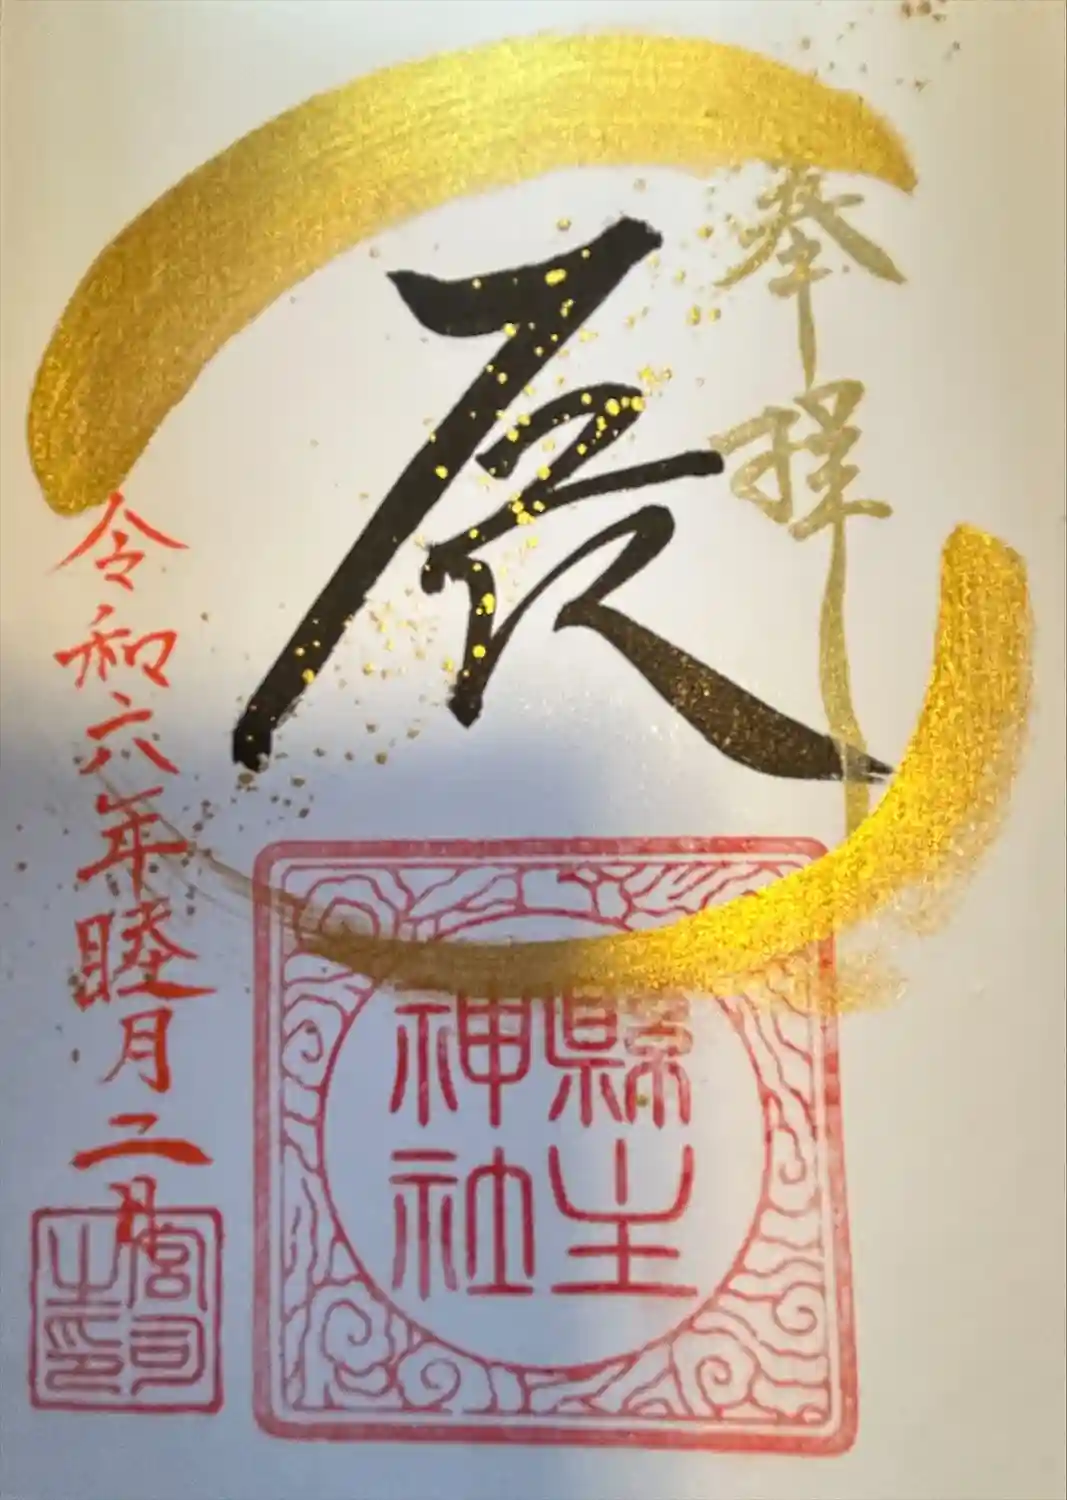 奉拝
辰
縣主
神社
令和六年睦月二日
宮司
之印